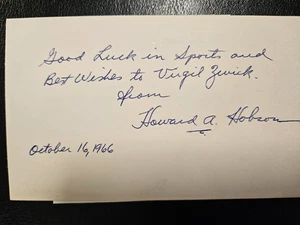 Good Luck in Sports and
Best Wishes to Virgil Zwick.
from
Howard A. Hobson
October 16, 1966